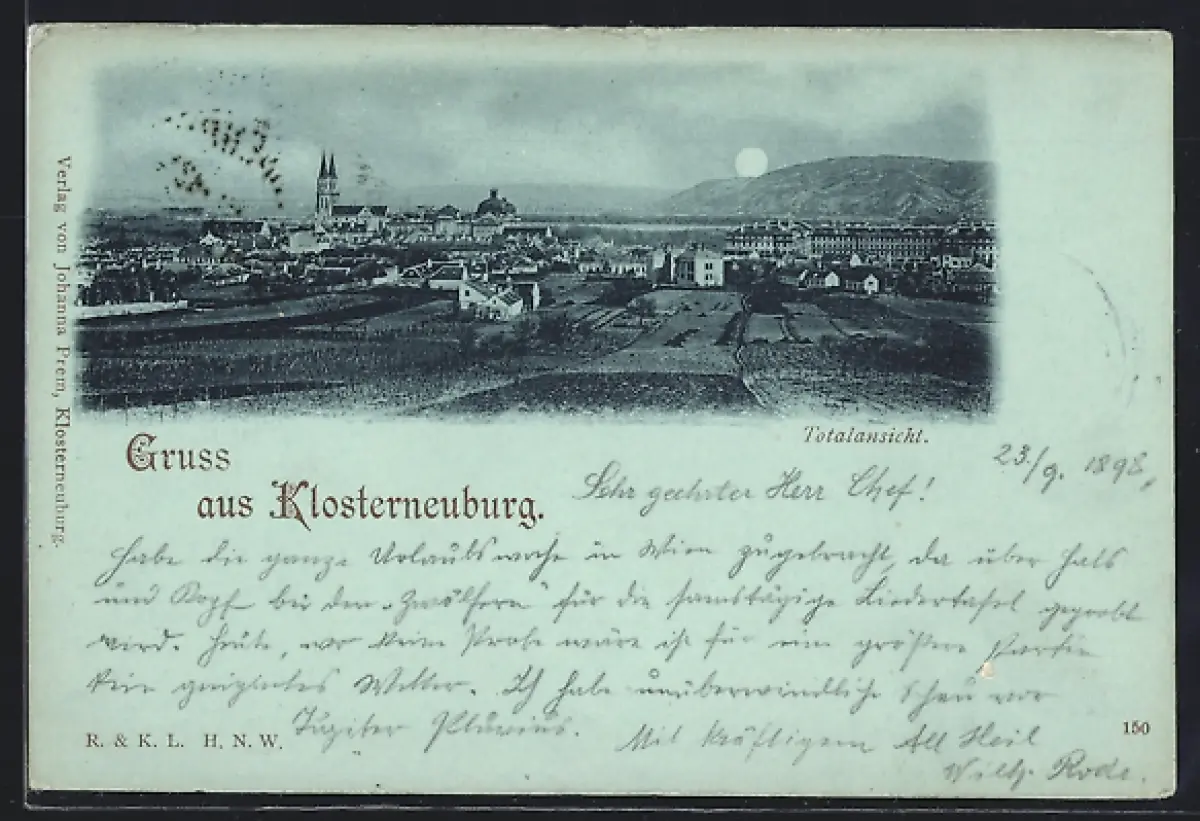 Verlag von Johanna Prem, Klosterneuburg.
Totalansicht.
Gruss
aus Klosterneuburg.
23./9. 1898.
Sehr geehrter Herr Chef!
Habe die ganze Urlaubswoche in Wien zugebracht, da über Hals
und Kopf bei den „Zwölfern" für die samstägige Liedertafel geprobt
wird. Heute, wo keine Probe wäre ist für eine größere Partie
kein geeignetes Wetter. Ich habe unüberwindliche Scheu vor
Jupiter Pluvius. Mit kräftigem All Heil
Wilh. Rode.
R. & K. L. H. N. W.
150